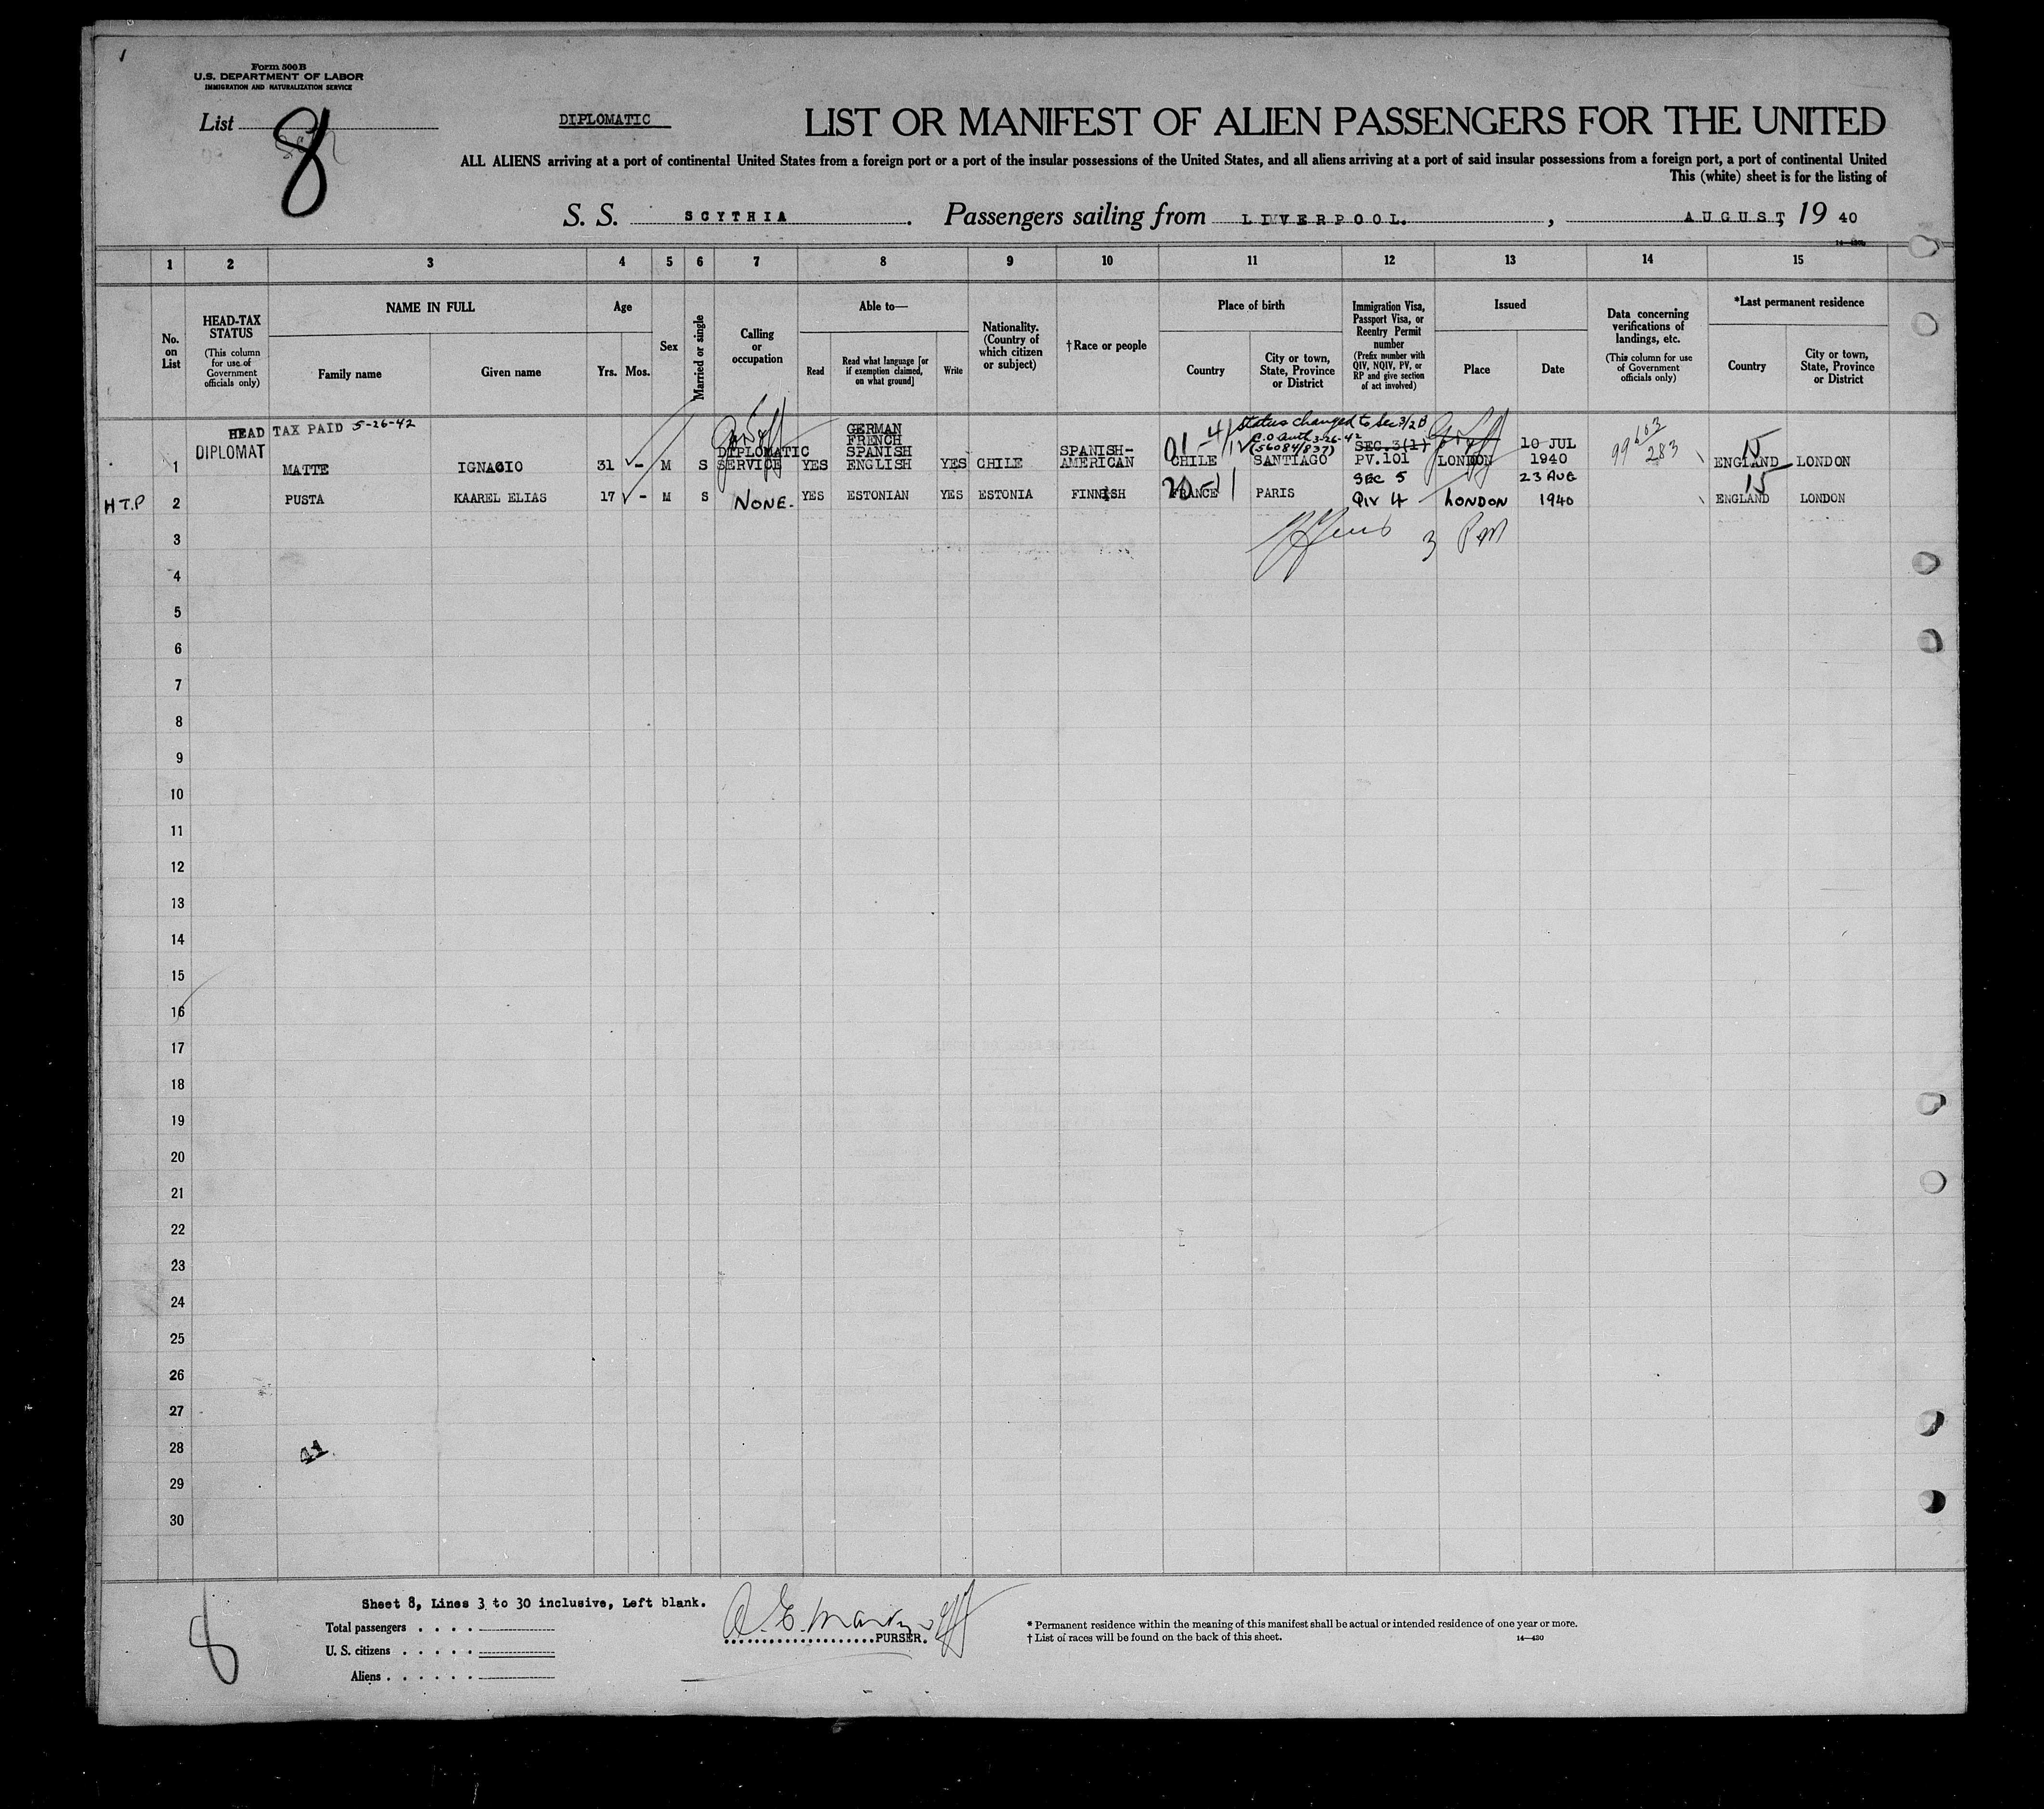 1
Form 500 B
U.S. DEPARTMENT OF LABOR
IMMIGRATION AND NATURALIZATION SERVICE
List 8
DIPLOMATIC
LIST OR MANIFEST OF ALIEN PASSENGERS FOR THE UNITED
ALL ALIENS arriving at a port of continental United States from a foreign port or a port of the insular possessions of the United States, and all aliens arriving at a port of said insular possessions from a foreign port, a port of continental United
This (white) sheet is for the listing of
S. S. SCYTHIA. Passengers sailing from LIVERPOOL., AUGUST, 19 40
14—430
1 2 3 4 5 6 7 8 9 10 11 12 13 14 15
No. on List
HEAD-TAX STATUS (This column for use of Government officials only)
NAME IN FULL
Family name
Given name
Age
Yrs. Mos.
Sex
Married or single
Calling or occupation
Able to—
Read
Read what language [or if exemption claimed, on what ground]
Write
Nationality. (Country of which citizen or subject)
†Race or people
Place of birth
Country
City or town, State, Province or District
Immigration Visa, Passport Visa, or Reentry Permit number (Prefix number with QIV, NQIV, PV, or RP and give section of act involved)
Issued
Place
Date
Data concerning verifications of landings, etc. (This column for use of Government officials only)
*Last permanent residence
Country
City or town, State, Province or District
HEAD TAX PAID 5-26-42
Status changed to Sec 3(2)
C.O. Auth 3-26-42
(56084/837)
01 - 4
99 663 283
15
1 DIPLOMAT MATTE IGNACIO 31 - M S DIPLOMATIC SERVICE YES GERMAN FRENCH SPANISH ENGLISH YES CHILE SPANISH-AMERICAN CHILE SANTIAGO SEC. 3(1) PV.101 LONDON 10 JUL 1940 ENGLAND LONDON
15
HTP 2 PUSTA KAAREL ELIAS 17 - M S NONE. YES ESTONIAN YES ESTONIA FINNISH FRANCE PARIS SEC 5 QIV 4 LONDON 23 AUG 1940 ENGLAND LONDON
3
4
5
6
7
8
9
10
11
12
13
14
15
16
17
18
19
20
21
22
23
24
25
26
27
28
29
30
8
Sheet 8, Lines 3 to 30 inclusive, Left blank.
Total passengers . . . .
U. S. citizens . . . . .
Aliens . . . . . .
PURSER.
* Permanent residence within the meaning of this manifest shall be actual or intended residence of one year or more.
† List of races will be found on the back of this sheet.
14—430